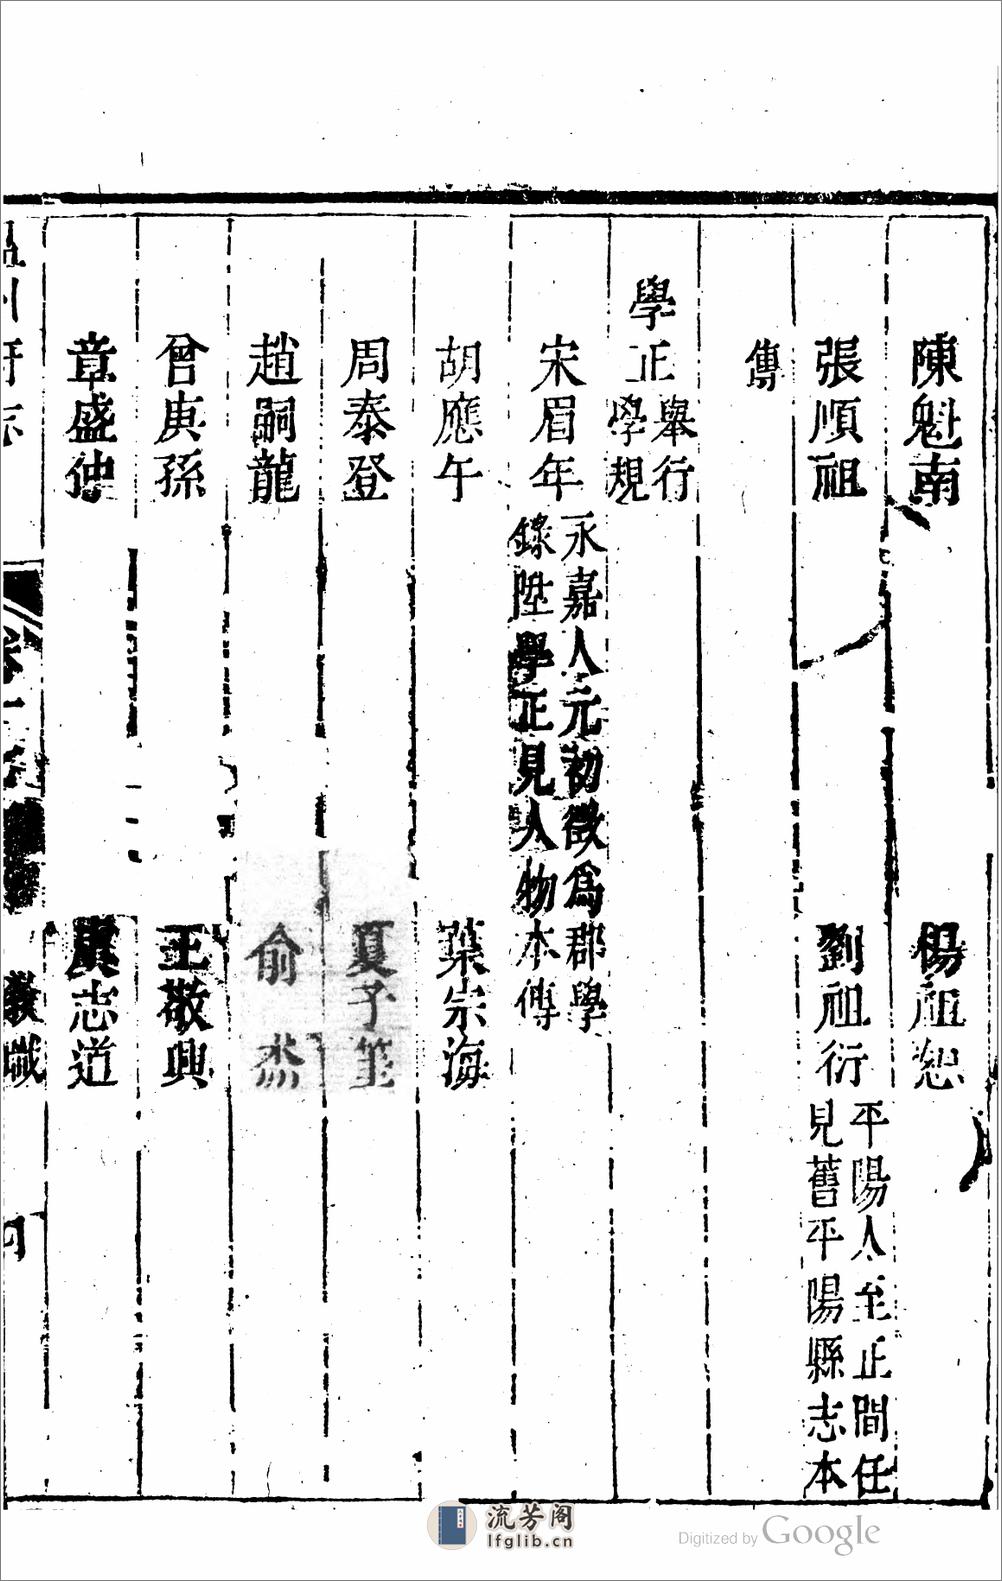 陳魁南　楊祖恕
張順祖　劉祖衍　平陽人至正間任
見舊平陽縣志本
傳
學正　舉行
學規
宋眉年　永嘉人元初徵爲郡學
錄陞學正見人物本傳
胡應午　葉宗海
周泰登　夏予
趙嗣龍　俞
曾庚孫　王敬興
章盛仲　志道
教職
流芳阁
lfglib.cn
Digitized by Google